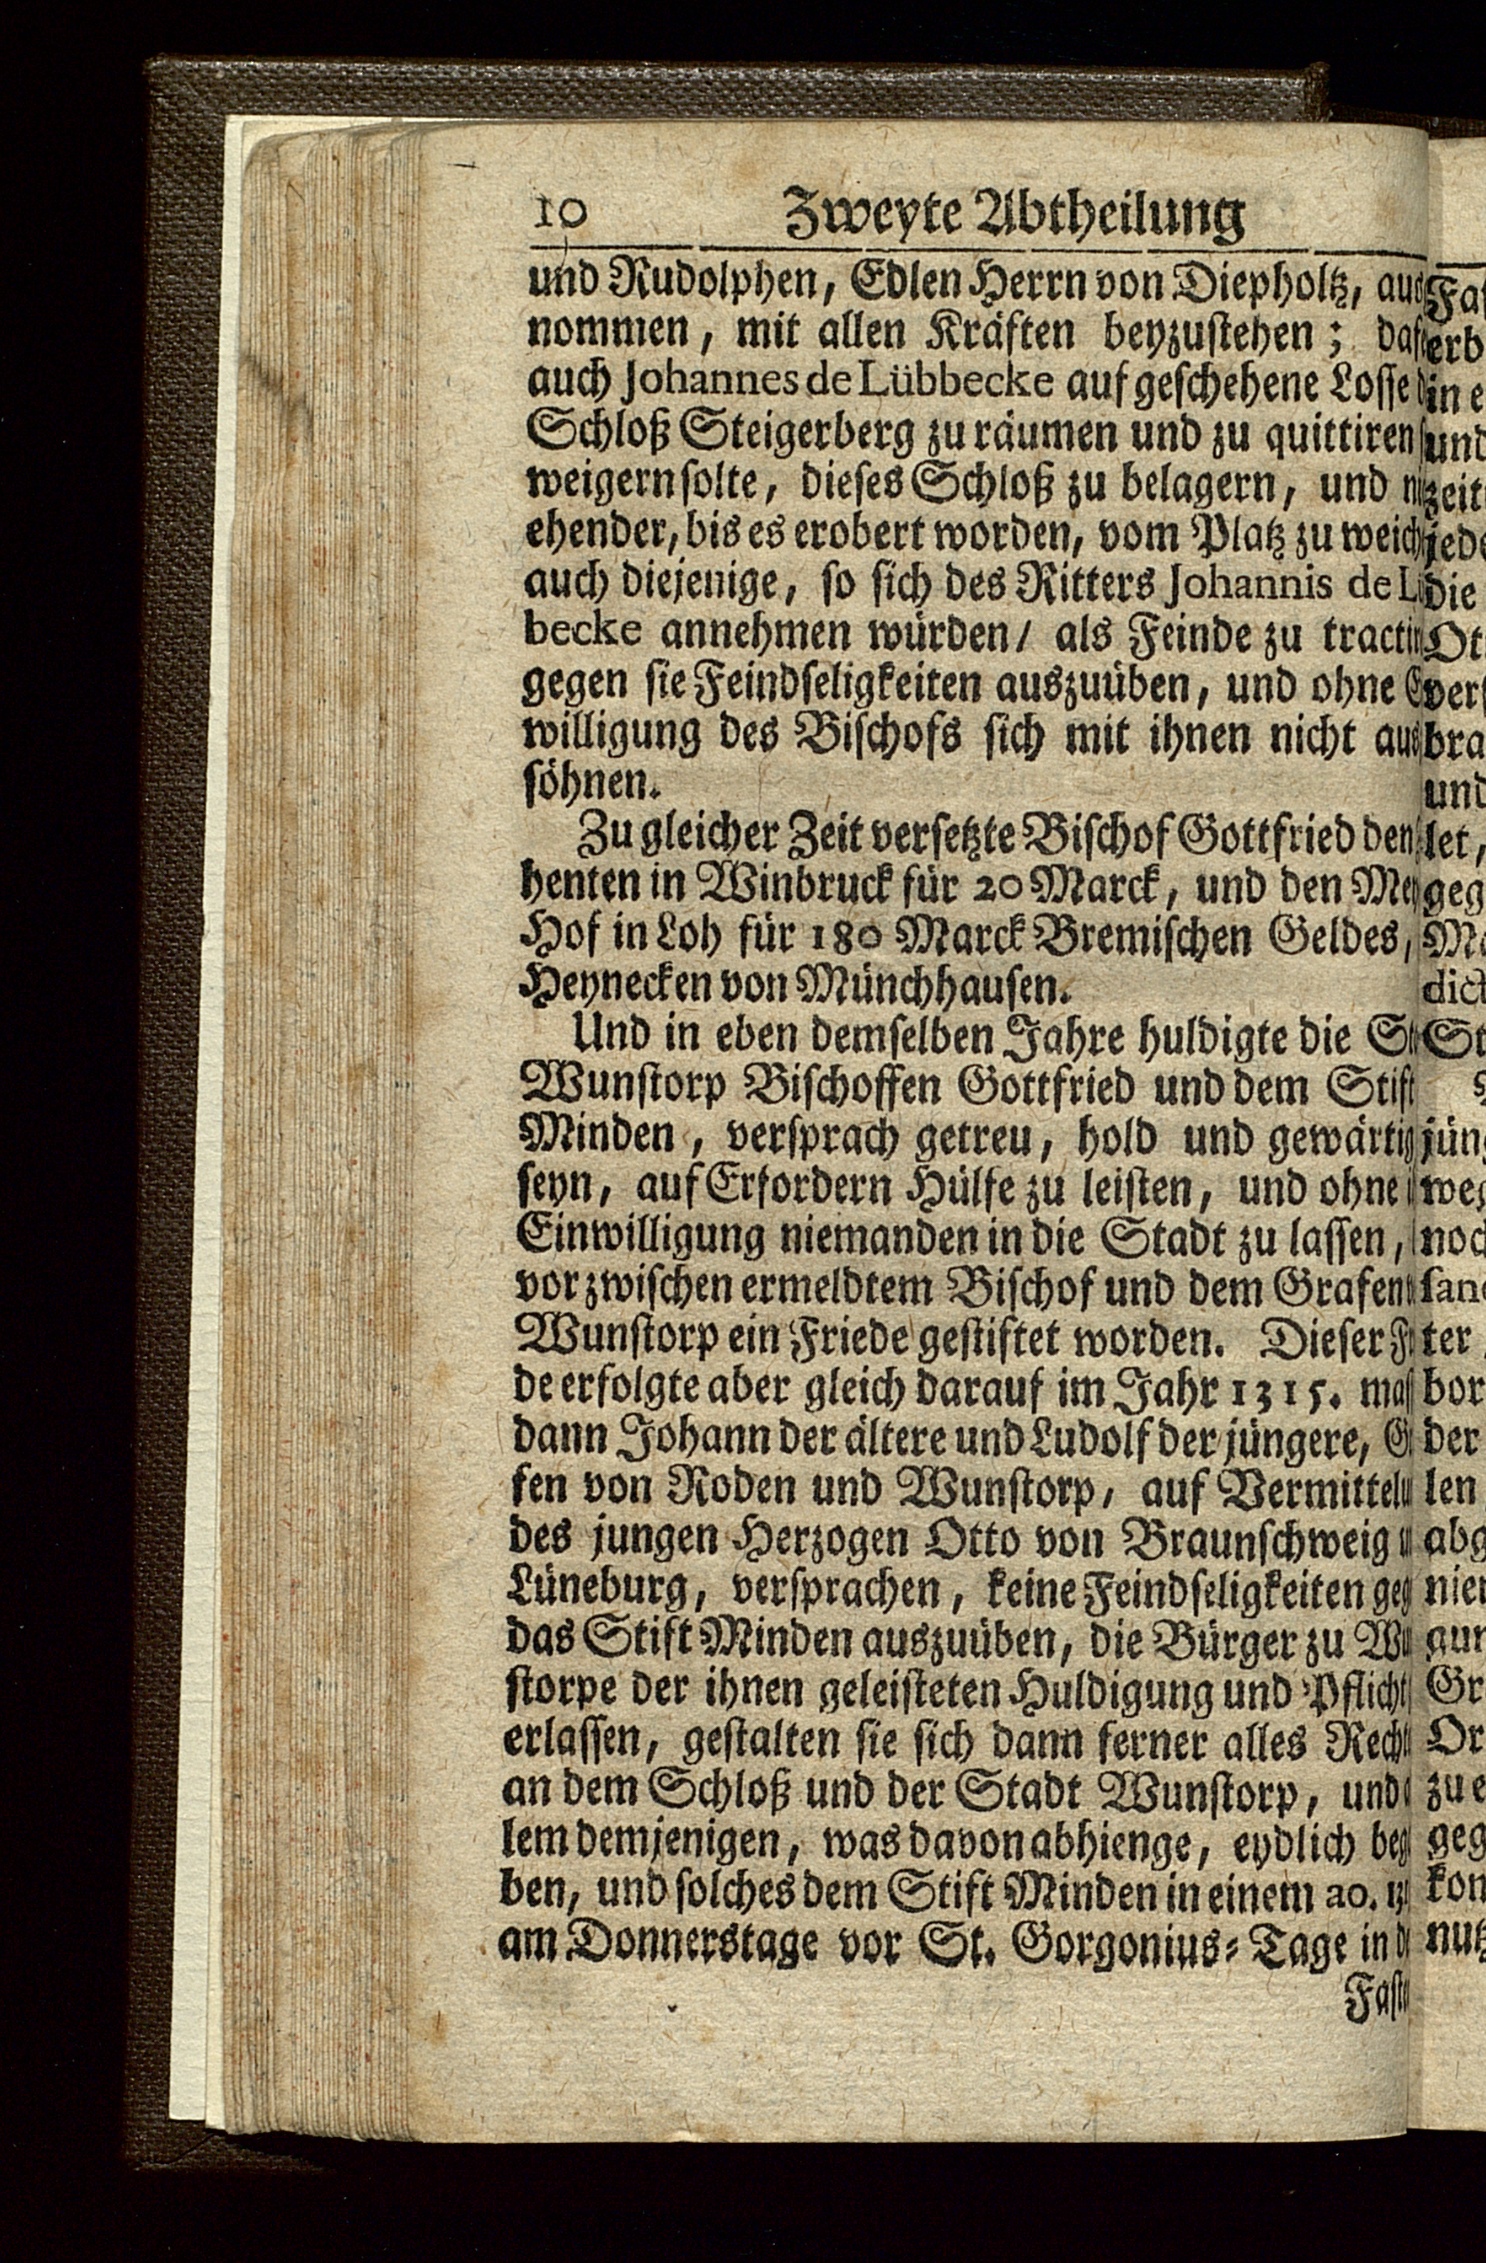 10 Zweyte Abtheilung
und Rudolphen, Edlen Herrn von Diepholtz,
nommen, mit allen Kräften beyzustehen;
auch Johannes de Lübbecke auf geschehene Losse
Schloß Steigerberg zu räumen und zu quittiren
weigern solte, dieses Schloß zu belagern, und
ehender, bis es erobert worden, vom Platz zu
auch diejenige, so sich des Ritters Johannis de
becke annehmen würden/ als Feinde zu
gegen sie Feindseligkeiten auszuüben, und ohne
willigung des Bischofs sich mit ihnen nicht
söhnen.
Zu gleicher Zeit versetzte Bischof Gottfried den
henten in Winbruck für 20 Marck, und den
Hof in Loh für 180 Marck Bremischen Geldes,
Heynecken von Münchhausen.
Und in eben demselben Jahre huldigte die
Wunstorp Bischoffen Gottfried und dem Stift
Minden, versprach getreu, hold und gewärtig
seyn, auf Erfordern Hülfe zu leisten, und ohne
Einwilligung niemanden in die Stadt zu lassen,
vor zwischen ermeldtem Bischof und dem Grafen
Wunstorp ein Friede gestiftet worden. Dieser
de erfolgte aber gleich darauf im Jahr 1315.
dann Johann der ältere und Ludolf der jüngere,
fen von Roden und Wunstorp, auf
des jungen Herzogen Otto von Braunschweig
Lüneburg, versprachen, keine Feindseligkeiten
das Stift Minden auszuüben, die Bürger zu
storpe der ihnen geleisteten Huldigung und Pflicht
erlassen, gestalten sie sich dann ferner alles
an dem Schloß und der Stadt Wunstorp, und
lem demjenigen, was davon abhienge, eydlich
ben, und solches dem Stift Minden in einem ao.
am Donnerstage vor St. Gorgonius-Tage in